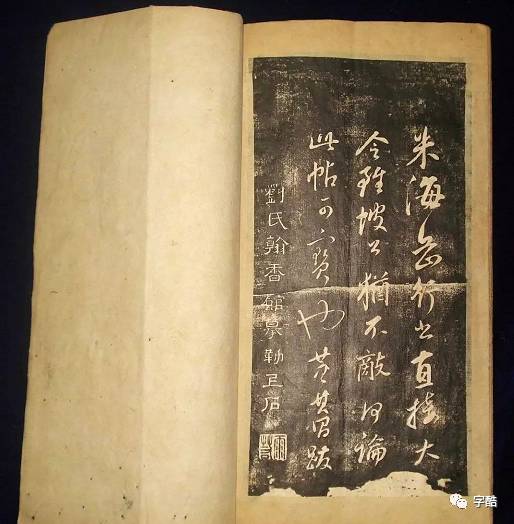 米海岳行書直接大
令雖坡公猶不敵何論
此帖可寶也董其昌跋
劉氏翰香館摹勒上石
字酷